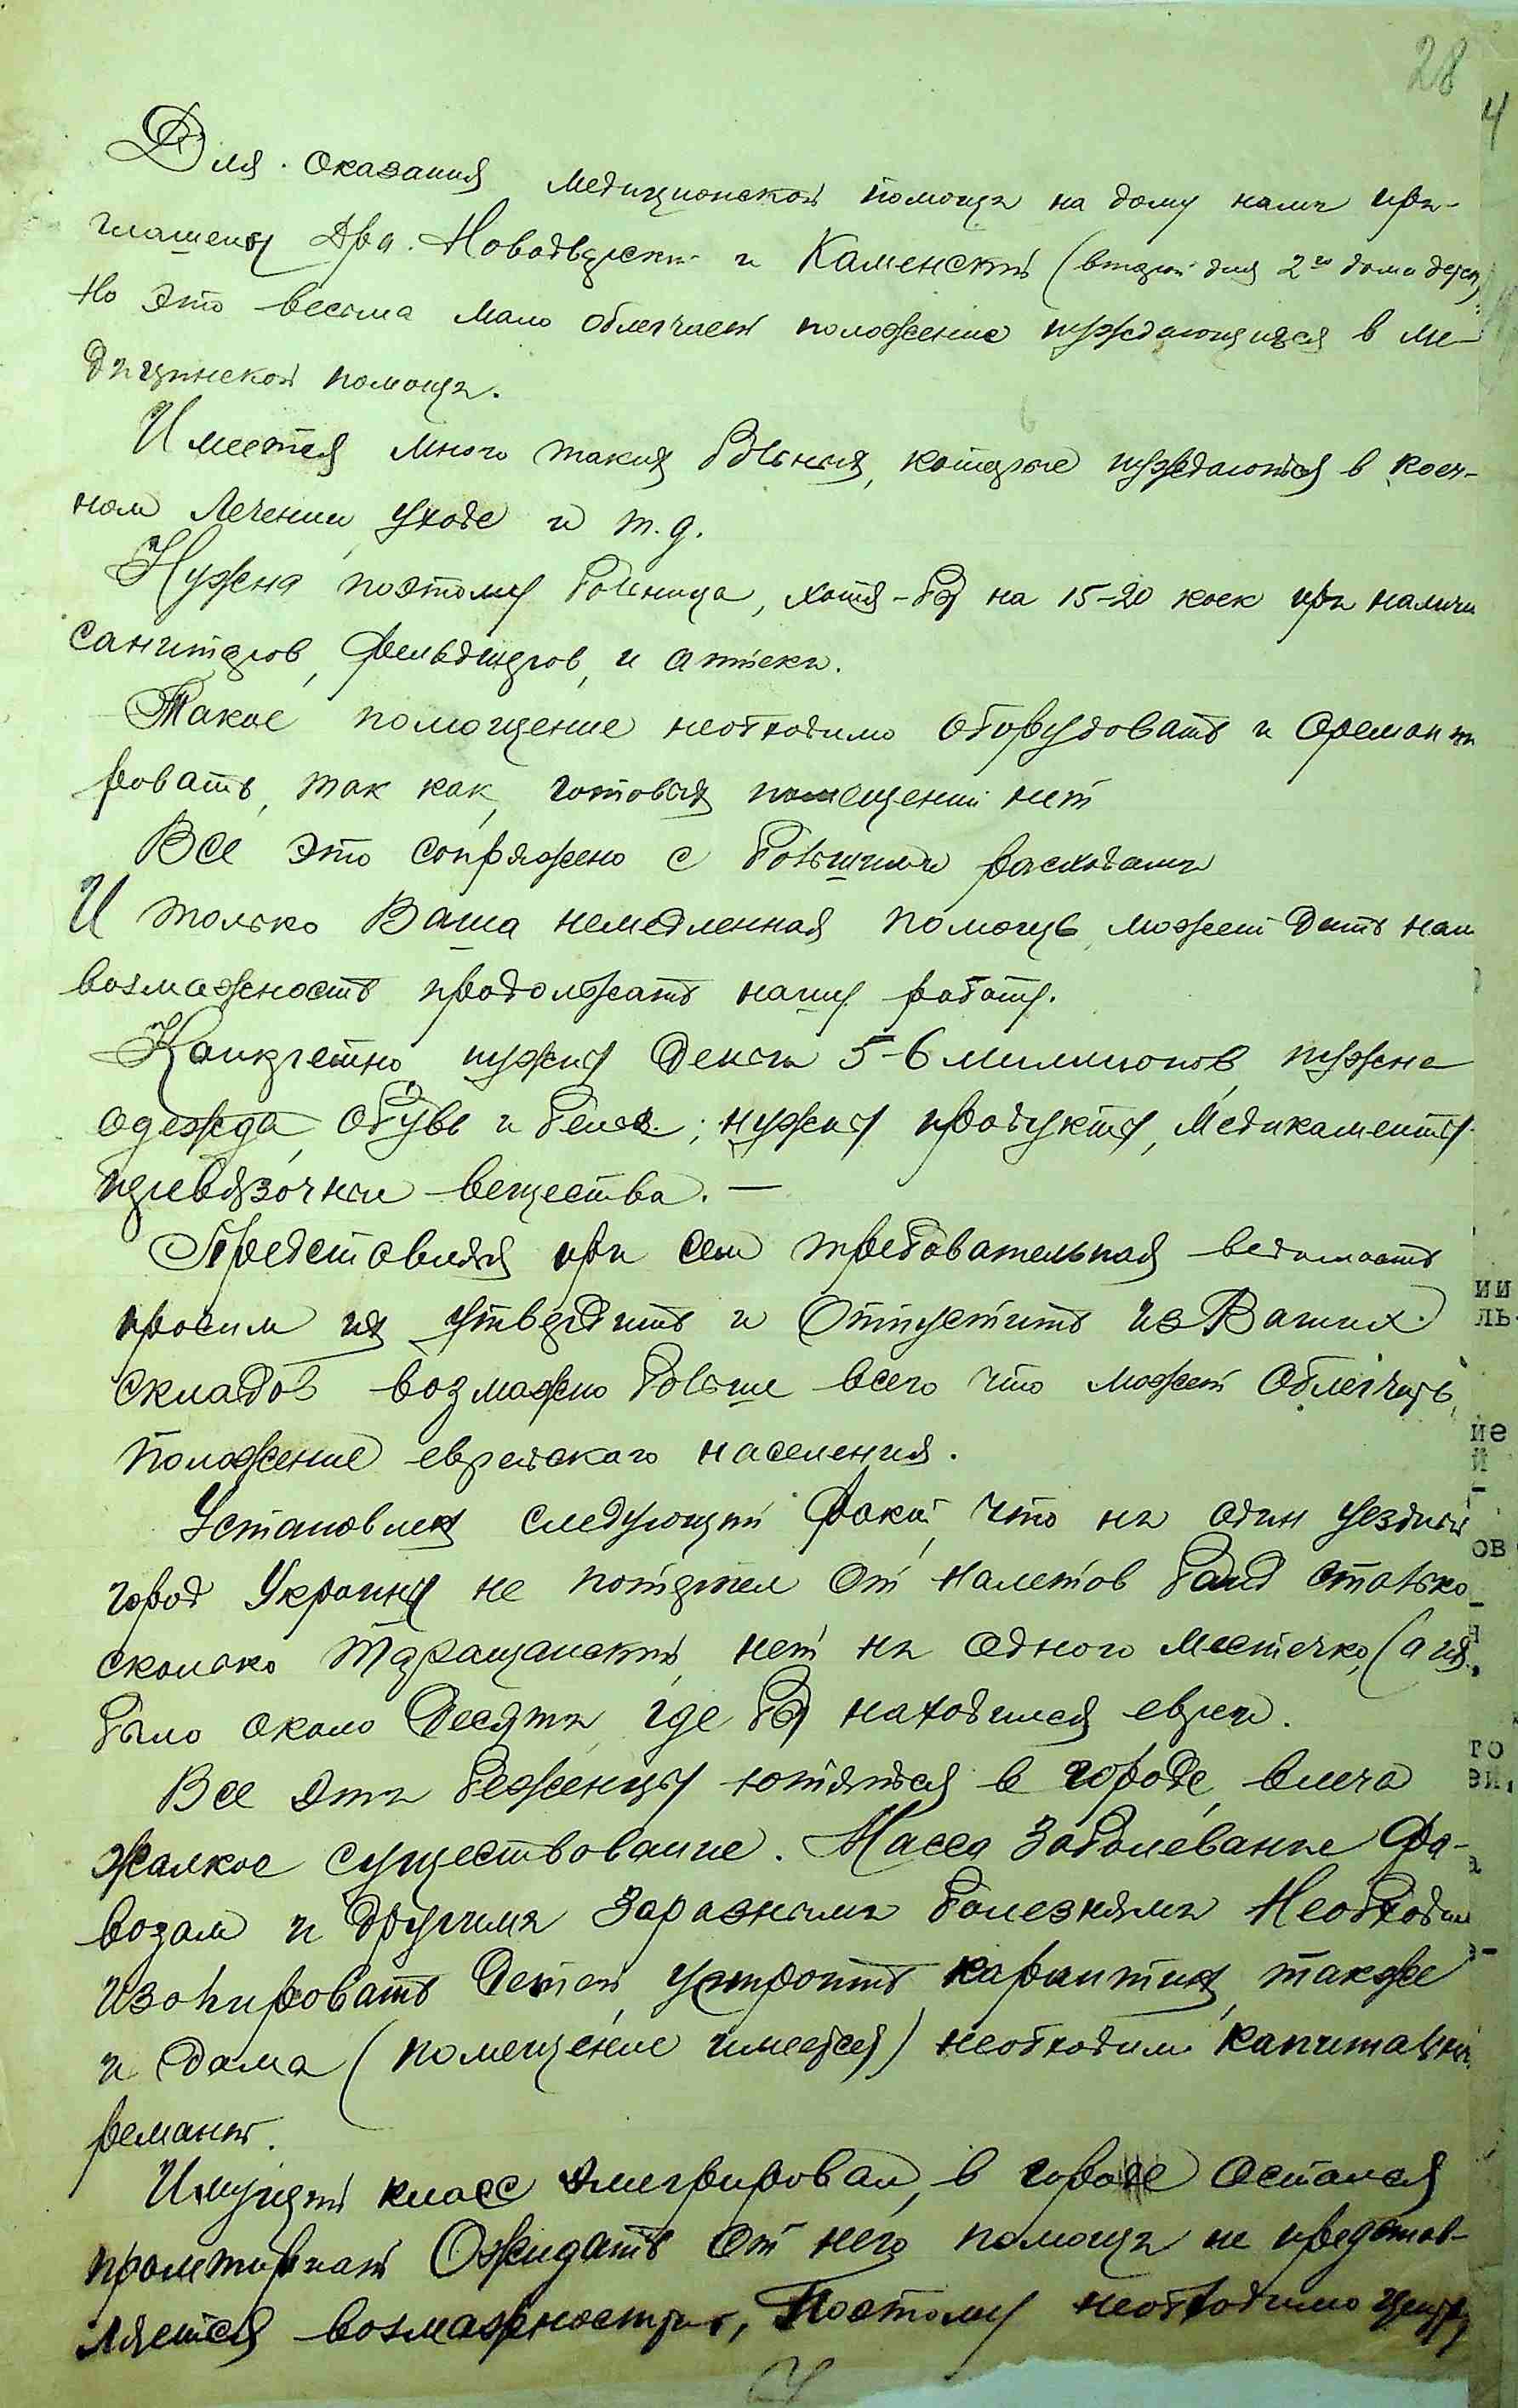 28
4
Для оказания медиционской помощи на дому нами при-
глашены Два. Новодворский и Каменский (второй для 2го дома детей)
Но это весьма мало облегчает положение нуждающихся в ме-
дицинской помощи.
Имеется много таких больных, которые нуждаются в коеч-
ном лечении, уходе и т.д.
Нужна поэтому больница, хотя-бы на 15-20 коек при наличи
санитаров, фельдшеров, и аптеки.
Такое помощение необходимо оборудовать и оремонти
ровать, так как, готовых помещений нет
Все это сопряжено с большими расходами
И только Ваша немедленная помощь, может дать нам
возможность продолжать нашу работу.
Конкретно нужны деньги 5-6 миллионов, нужна
одежда, обувь и белье; нужны продукты, медикаменты
перевязочные вещества. —
Представляя при сем требовательная ведомость
просим их утвердить и отпустить из Ваших
складов возможно больше всего что может облегчить,
положение еврейского населения.
Установлен следующий факт, что ни один уездный
город Украины не потерпел от налетов банд столько
сколько Таращанский, нет ни одного местечко, (а их
было около десяти, где бы находился евреи.
Все эти беженцы ютятся в городе, влача
жалкое существование. Масса заболевание фа-
возам и другими заразными болезнями Необходим
изолировать детей, устроить карантин, также
и дома (помещение имеется) необходим капитальный
ремонт.
Имущий класс эмигрировал, в городе остался
пролетариат Ожидать от него помощи не представ-
ляется возможности, Поэтому необходимо
ии
ль
ие
й
ов
то